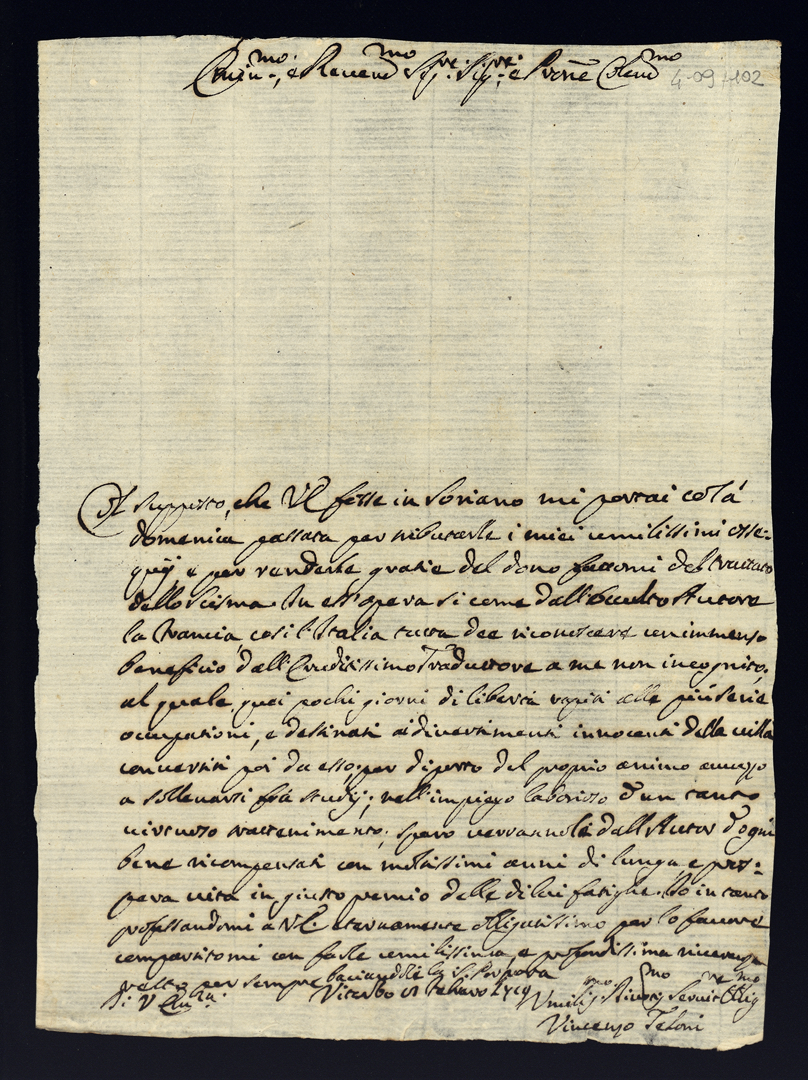 Emin.mo, e Reverend.mo Sig.re Sig.re e Prone Colend.mo
4-09/102
Il supposto, che VE fosse in Soriano mi portai colá
domenica passata per tributarle i miei umilissimi osse=
quij e per renderle gratie del dono fattomi del trattato
dello Scisma. In ess'opera si come dall'Occulto Autore
la Francia, cosi l'Italia tutta dee riconoscere un immenso
beneficio dall'Eruditissimo Traduttore a me non incognito,
al quale quei pochi giorni di libertà rapiti alle piú serie
occupationi, e destinati a divertimenti innocenti della villa
convertiti poi da esso, per diporto del proprio animo avvezzo
a sollevarsi frá studij, nell'impiego laborioso d'un tanto
virtuoso trattenimento, spero verrannole dall'Autor d'ogni
bene ricompensati con moltissimi anni di lunga e pros=
pera vita in giusto premio delle di lei fatighe. Io in tanto
professandomi a VE. eternamente obligatissimo per lo favore
compartitomi con farle umilissima, e profondissima riverenza
resto per sempre baciandole la S. Porpora
Di V Em.za Viterbo Febraro 1719 Umilis.mo Divotis.mo Servit.re Oblig.mo
Vincenzo Teloni